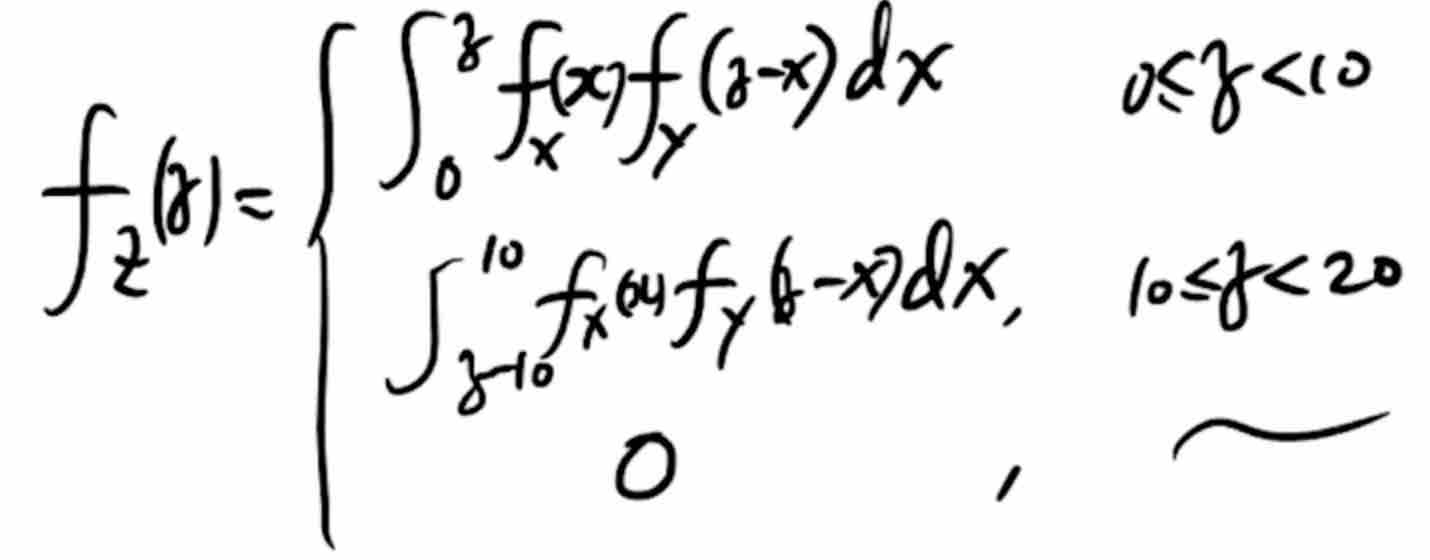 f_Z(z) = { ∫_0^z f_X(x) f_Y(z-x) dx 0 ≤ z < 10
∫_{z-10}^{10} f_X(x) f_Y(z-x) dx, 10 ≤ z < 20
0 , ~